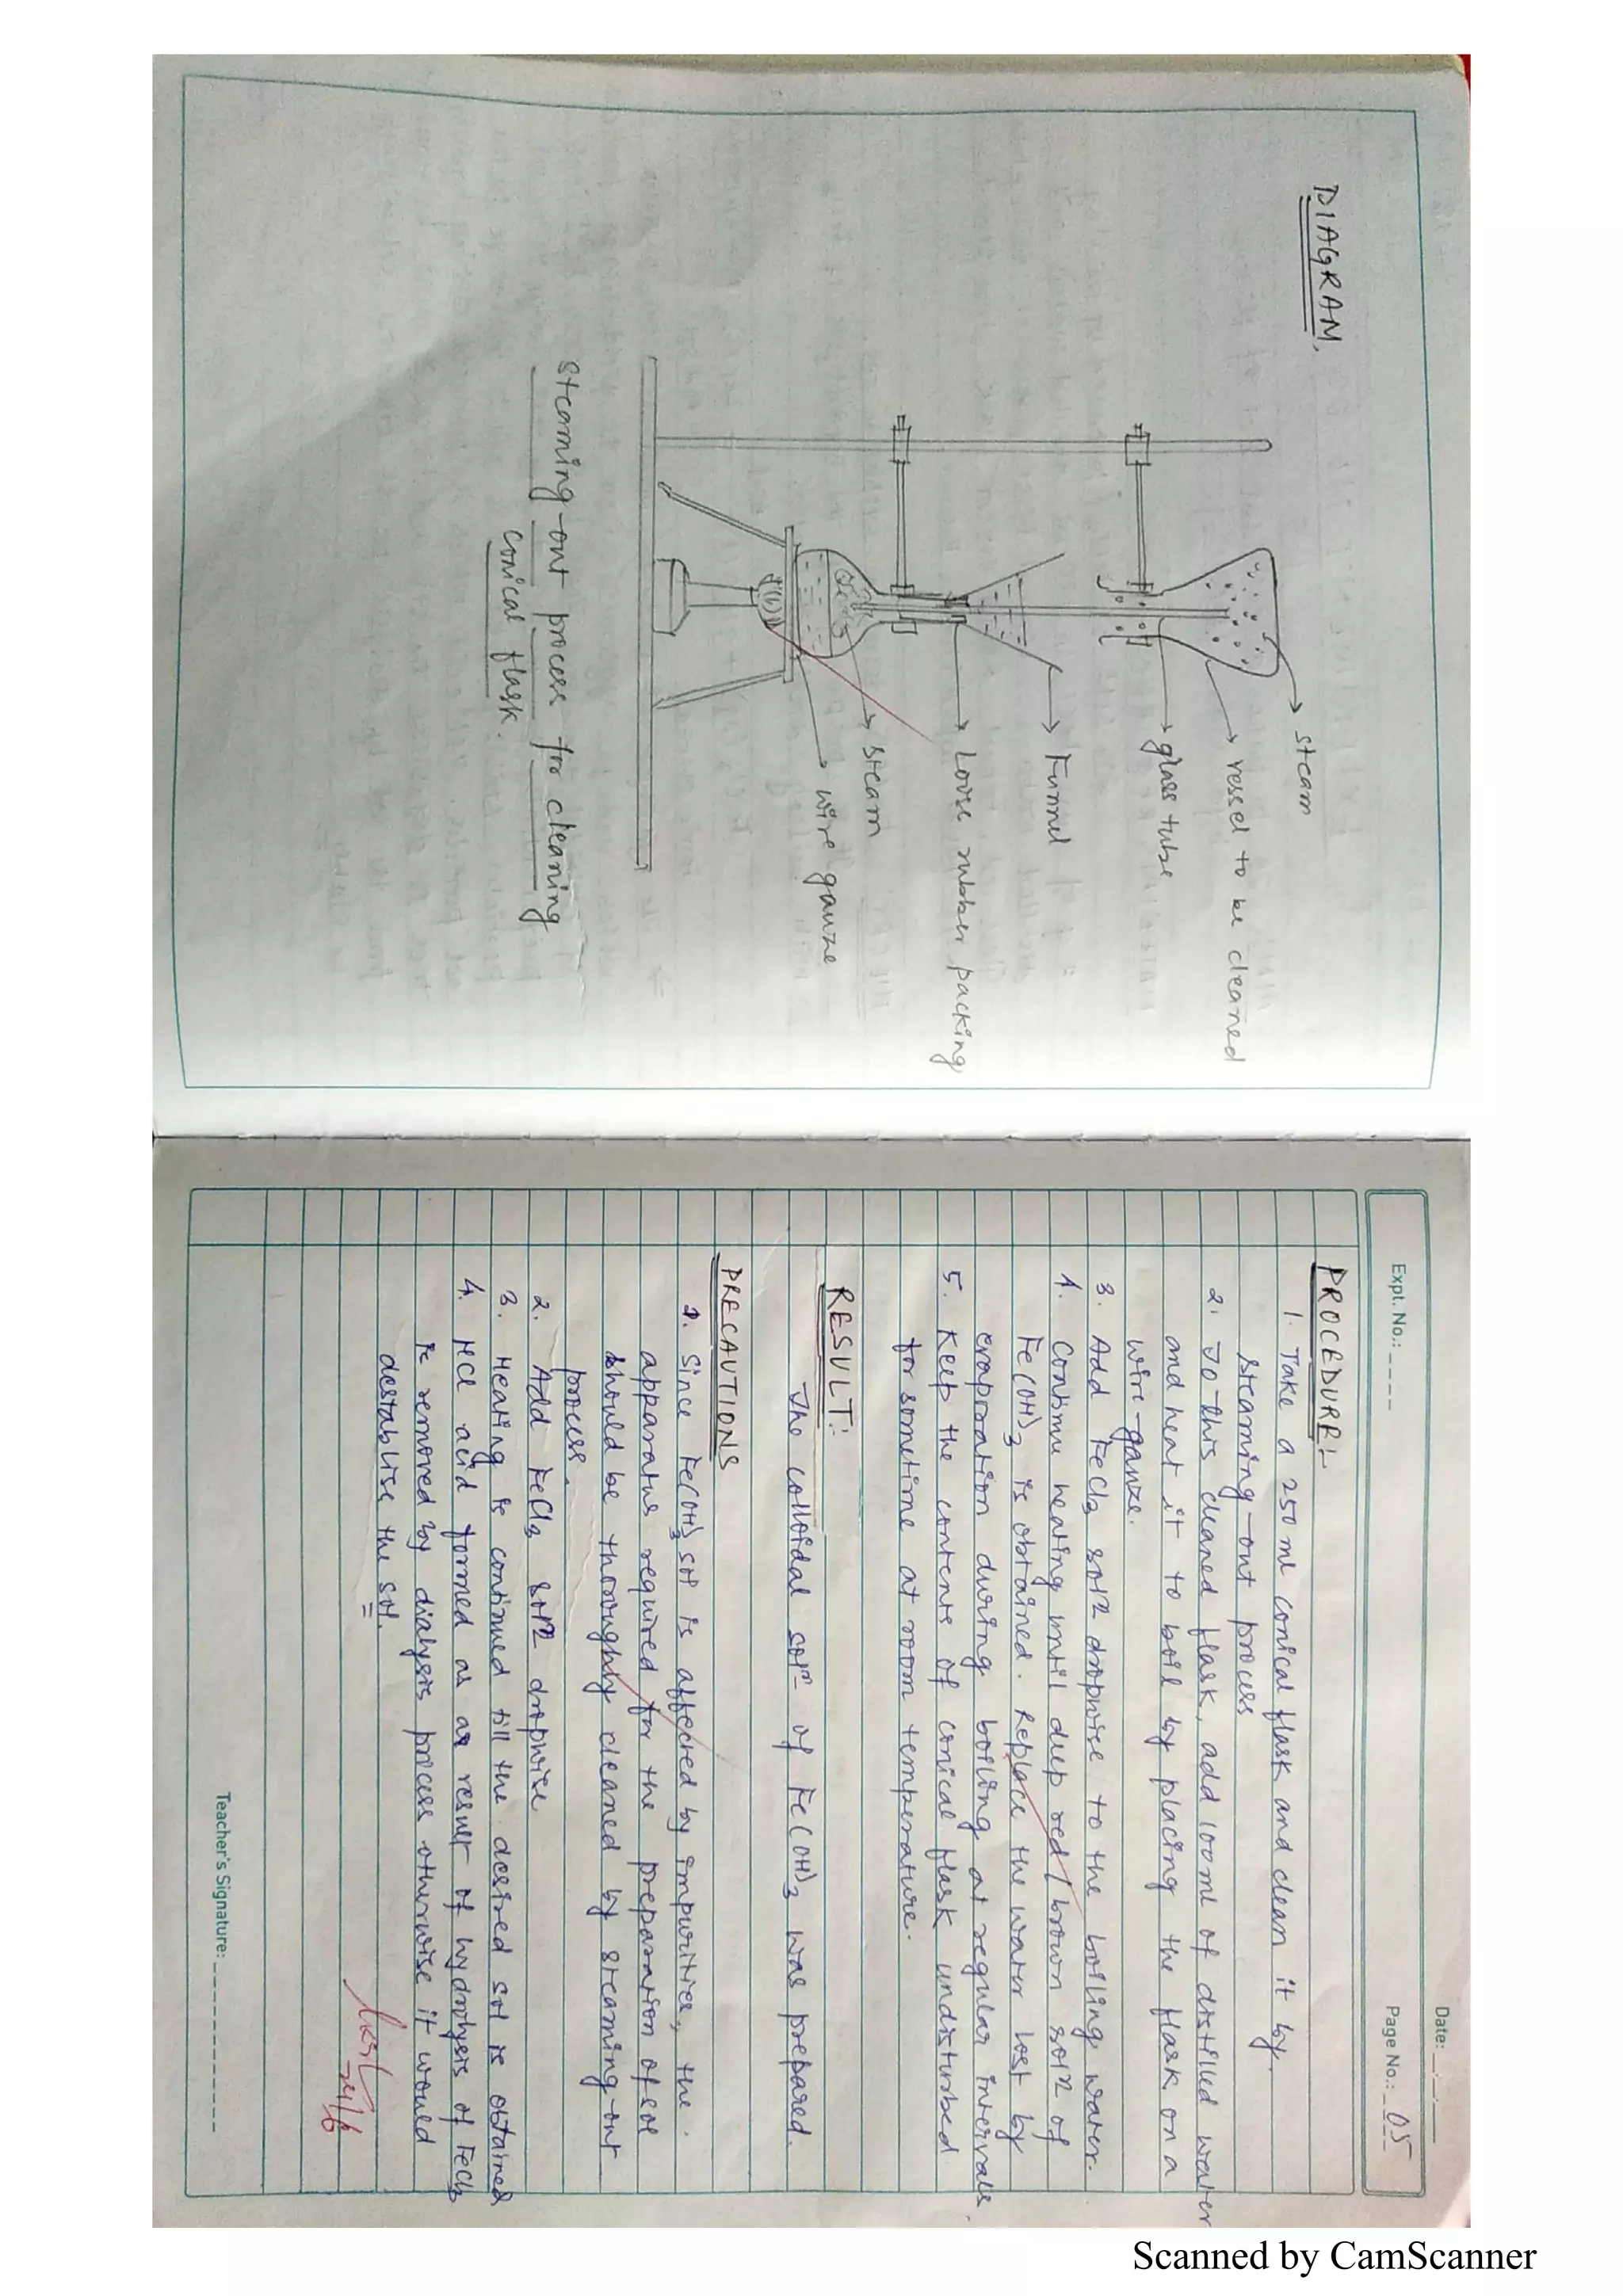 DIAGRAM.
steam
vessel to be cleaned
glass tube
Funnel
Loose rubber packing
steam
wire gauze
Steaming-out process for cleaning
conical flask.
Date: __.__.____
Expt. No.: _ _ _ _
Page No.: 05
PROCEDURE:-
1. Take a 250 ml conical flask and clean it by
steaming-out process
2. To this cleaned flask, add 100ml of distilled water
and heat it to boil by placing the flask on a
wire-gauze.
3. Add FeCl3 solⁿ dropwise to the boiling water.
4. Continue heating until deep red/brown solⁿ of
Fe(OH)3 is obtained. Replace the water lost by
evaporation during boiling at regular intervals.
5. Keep the contents of conical flask undisturbed
for sometime at room temperature.
RESULT:-
The colloidal solⁿ of Fe(OH)3 was prepared.
PRECAUTIONS
1. Since Fe(OH)3 sol is affected by impurities, the
apparatus required for the preparation of sol
should be thoroughly cleaned by steaming-out
process.
2. Add FeCl3 solⁿ dropwise
3. Heating is continued till the desired sol is obtained
4. HCl acid formed as a result of hydrolysis of FeCl3
is removed by dialysis process otherwise it would
destablise the sol.
Teacher's Signature: _ _ _ _ _ _ _ _ _ _
Scanned by CamScanner